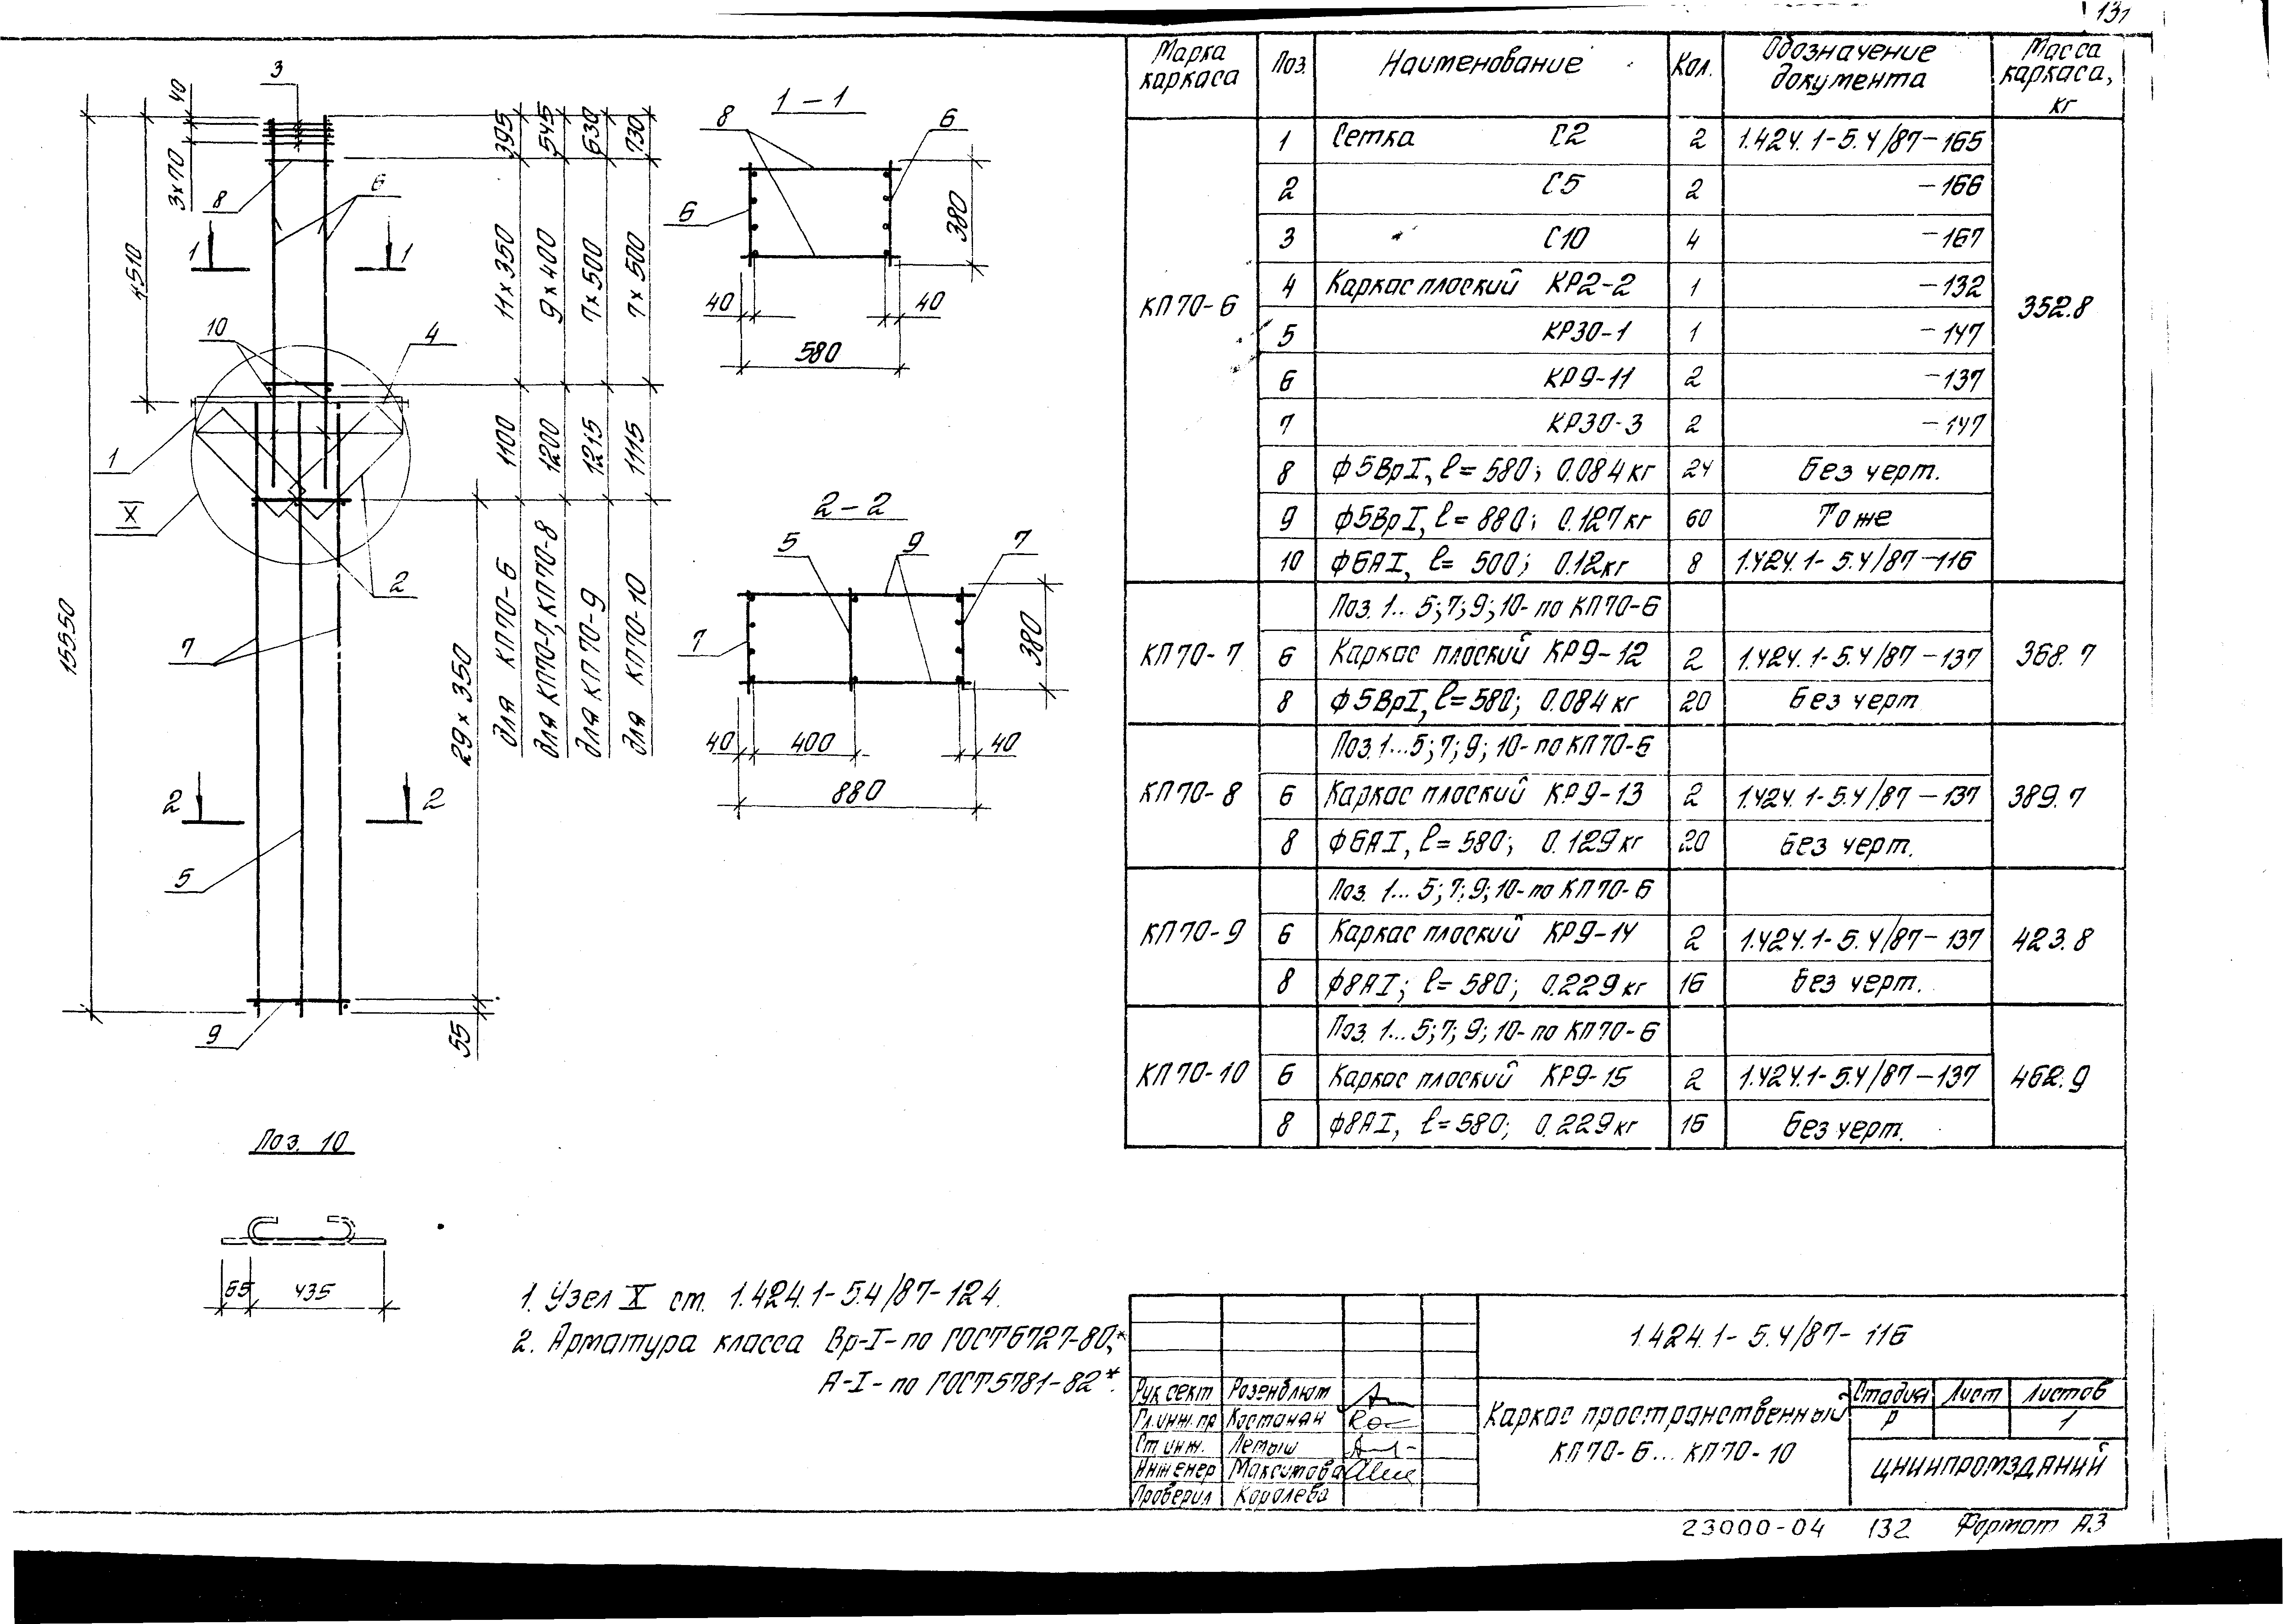 131
3
40
3×70
8
6
1
1
4510
10
4
1
X
2
15550
7
29×350
2
2
5
9
55
395
545
630
730
11×350
9×400
7×500
7×500
1100
1200
1215
1115
для КП70-6
для КП70-7, КП70-8
для КП70-9
для КП70-10
1-1
8
6
6
380
40
40
580
2-2
5
9
7
7
380
40
400
40
880
Поз. 10
435
1. Узел X ст. 1.424.1-5.4/87-124.
2. Арматура класса Вр-I- по ГОСТ 6727-80*,
А-I- по ГОСТ 5781-82*.
Марка каркаса Поз. Наименование Кол. Обозначение документа Масса каркаса, кг
КП70-6 352.8
1 Сетка С2 2 1.424.1-5.4/87-165
2 С5 2 -166
3 С10 4 -167
4 Каркас плоский КР2-2 1 -132
5 КР30-1 1 -147
6 КР9-11 2 -137
7 КР30-3 2 -147
8 ф5ВрI, ℓ=580; 0.084кг 24 Без черт.
9 ф5ВрI, ℓ=880; 0.127кг 60 То же
10 ф6АI, ℓ=500; 0.12кг 8 1.424.1-5.4/87-116
Поз. 1..5;7;9;10- по КП70-6
КП70-7 6 Каркас плоский КР9-12 2 1.424.1-5.4/87-137 368.7
8 ф5ВрI, ℓ=580; 0.084кг 20 Без черт
Поз. 1...5;7;9;10- по КП70-6
КП70-8 6 Каркас плоский КР9-13 2 1.424.1-5.4/87-137 389.7
8 ф6АI, ℓ=580; 0.129кг 20 Без черт.
Поз. 1...5;7;9;10- по КП70-6
КП70-9 6 Каркас плоский КР9-14 2 1.424.1-5.4/87-137 423.8
8 ф8АI; ℓ=580; 0.229кг 16 Без черт.
Поз. 1...5;7;9;10- по КП70-6
КП70-10 6 Каркас плоский КР9-15 2 1.424.1-5.4/87-137 462.9
8 ф8АI, ℓ=580; 0.229кг 16 Без черт.
1.424.1-5.4/87-116
Рук.сект Розенблюм
Гл.инж.пр Костанян
Ст.инж. Летыш
Инженер Максимова
Проверил Королева
Каркас пространственный
КП70-6...КП70-10
Стадия Лист Листов
Р 1
ЦНИИПРОМЗДАНИЙ
23000-04 132 Формат А3